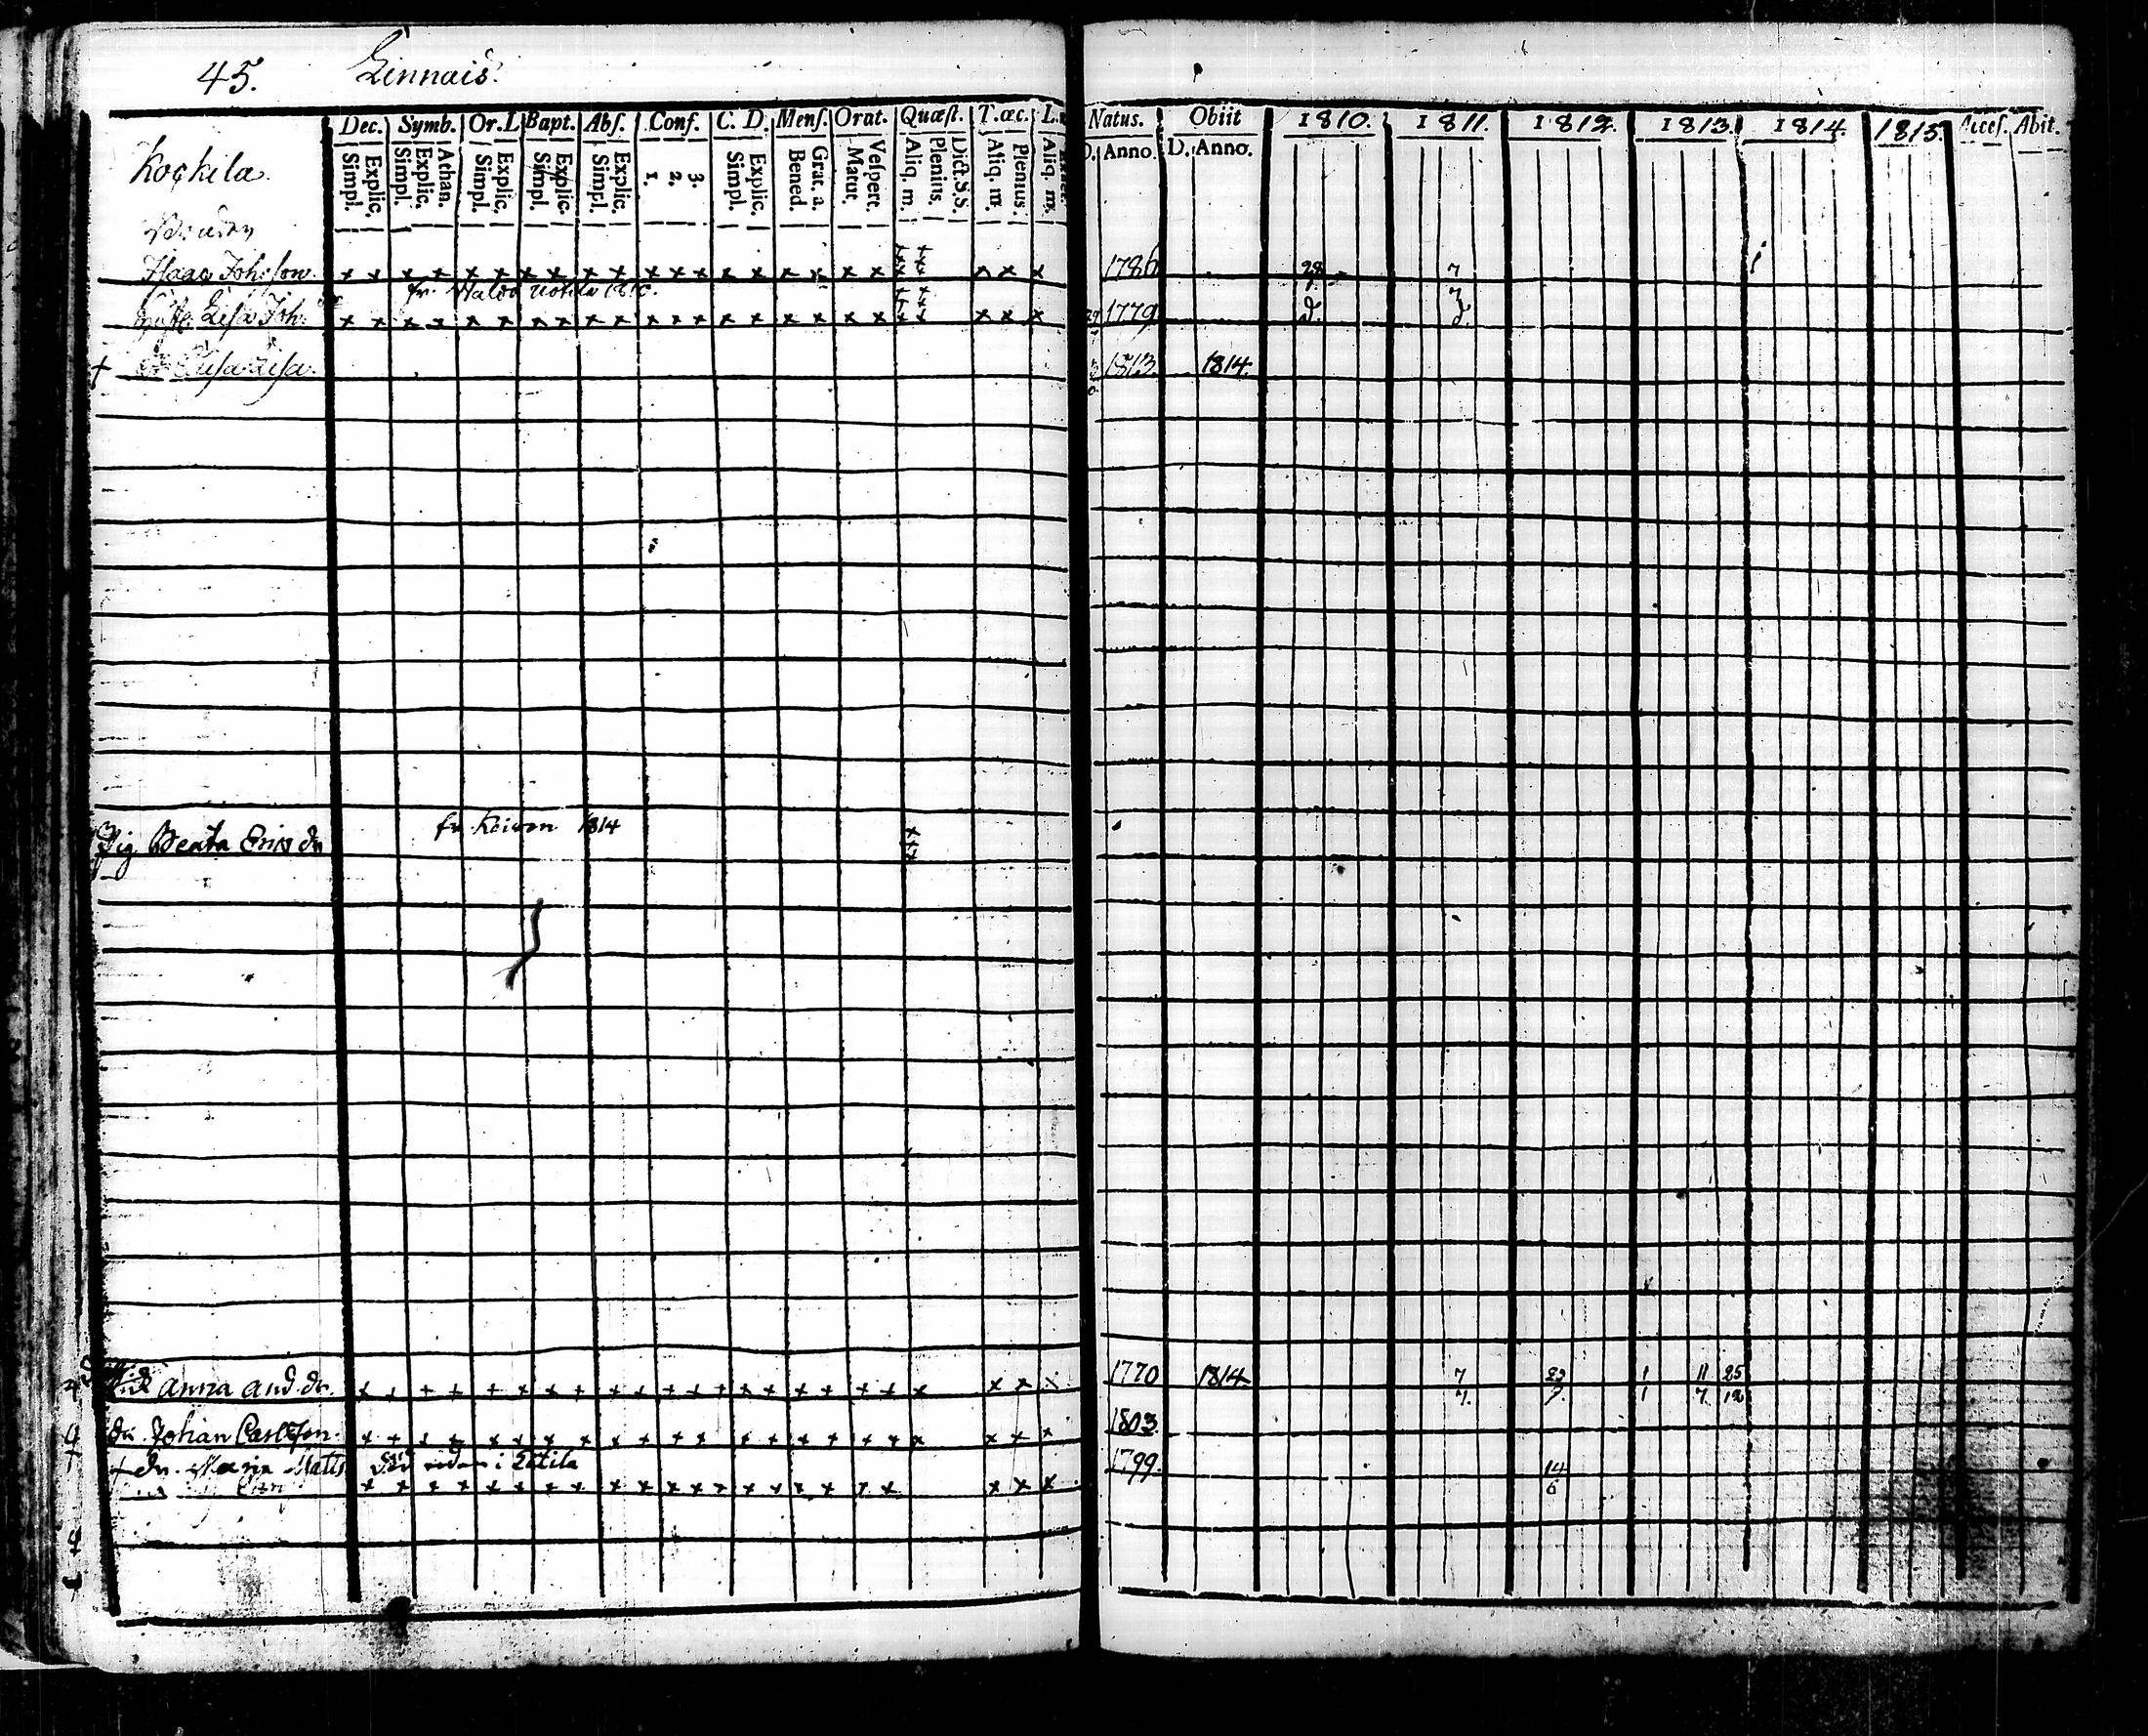 45. Linnais.
Dec. Symb. Or. L Bapt. Abs. Conf. C. D. Mens. Orat. Quæst. T. œc. L.
Natus. Obiit 1810. 1811. 1812. 1813. 1814. 1815. Acces. Abit.
Simpl. Explic. Simpl. Explic. Athan. Simpl. Explic. Simpl. Explic. Simpl. Explic. 1. 2. 3. Simpl. Explic. Bened. Grat. a. Matut. Vespert. Aliq. m. Plenius. Dict. S.S. Aliq. m. Plenius. Aliq. m.
D. Anno. D. Anno.
Kockila.
Isaac Joh:son. x x x x x x x x x x x x x x x x x x x x x x x 1786 28 7
fr. 1810.
Lisa Joh: x x x x x x x x x x x x x x x x x x x x x x x 1779 d. 7 d.
+ Lisa. 1813. 1814.
fr. Koivon 1814
Pig Beata Erics dr
Anna And. dr. 1770 1814 7 7. 23 7. 1 1 11 7 25 12
dr. Johan Carlsson. 1803.
dr. Maria Matts i 1799. 14 6